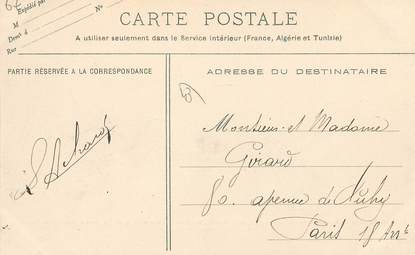 Expédié par
M
Demt à
Rue
CARTE POSTALE
A utiliser seulement dans le Service intérieur (France, Algérie et Tunisie)
PARTIE RÉSERVÉE A LA CORRESPONDANCE
ADRESSE DU DESTINATAIRE
Monsieur et Madame
Girard
80. avenue de Clichy
Paris 18 Arrt